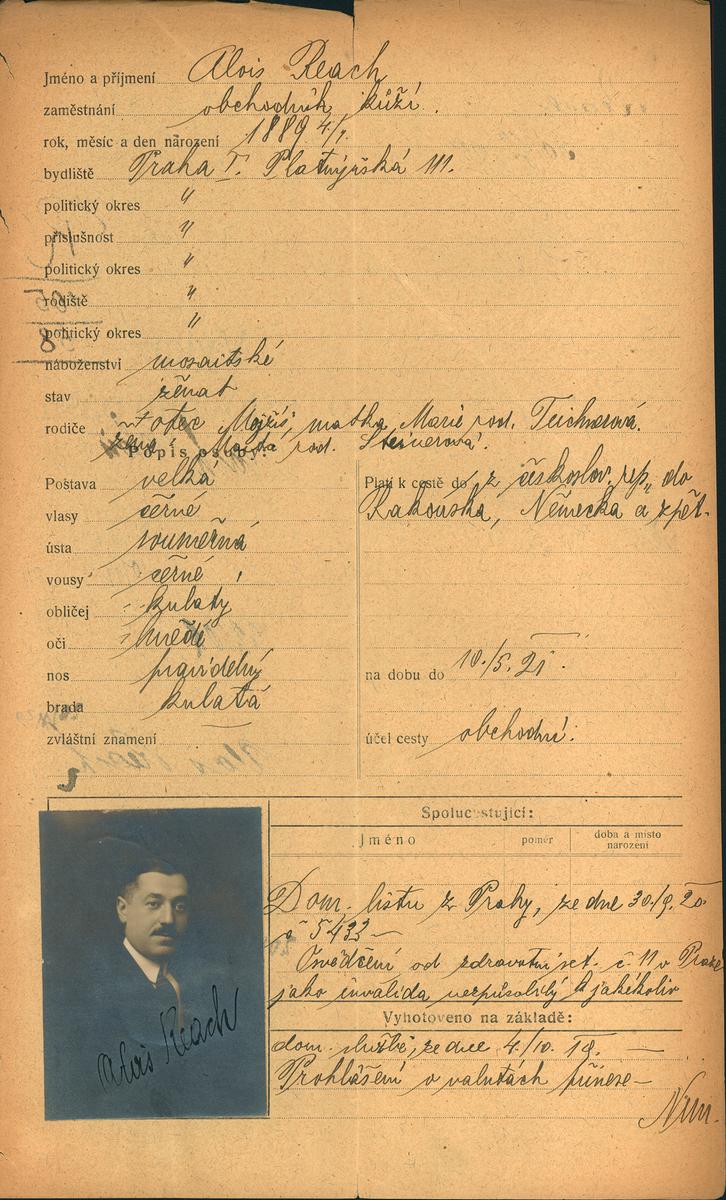 Jméno a příjmení Alois Reach
zaměstnání obchodník kůží.
rok, měsíc a den narození 1889 4/
bydliště Praha I. Platnýřská 111.
politický okres "
příslušnost "
politický okres "
rodiště "
politický okres "
náboženství mosaitské
stav ženat
rodiče otec Mojžíš, matka Marie rod. Teichnerová.
žena rod. Steinerová.
Popis osoby:
Postava velká
vlasy černé
ústa souměrná
vousy černé
obličej kulatý
oči hnědé
nos pravidelný
brada kulatá
zvláštní znamení
Platí k cestě do z českoslov. rep. do
Rakouska, Německa a zpět.
na dobu do 10./5. 21.
účel cesty obchodní.
Spolucestující:
Jméno poměr doba a místo narození
Dom. listu z Prahy, ze dne 30./9. 20
č 5433
Osvědčení od zdravotní č. 11 v Praze
jako invalida nezpůsobilý k jakékoliv
Vyhotoveno na základě:
dom. službě, ze dne 4./10. 18.
Prohlášení o valutách
Alois Reach